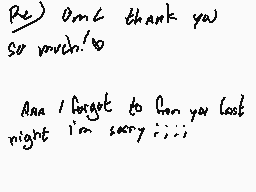 Re) Omc thank you
so much! ♡
Aaa I forgot to fran you last
night i'm sorry ;;;;